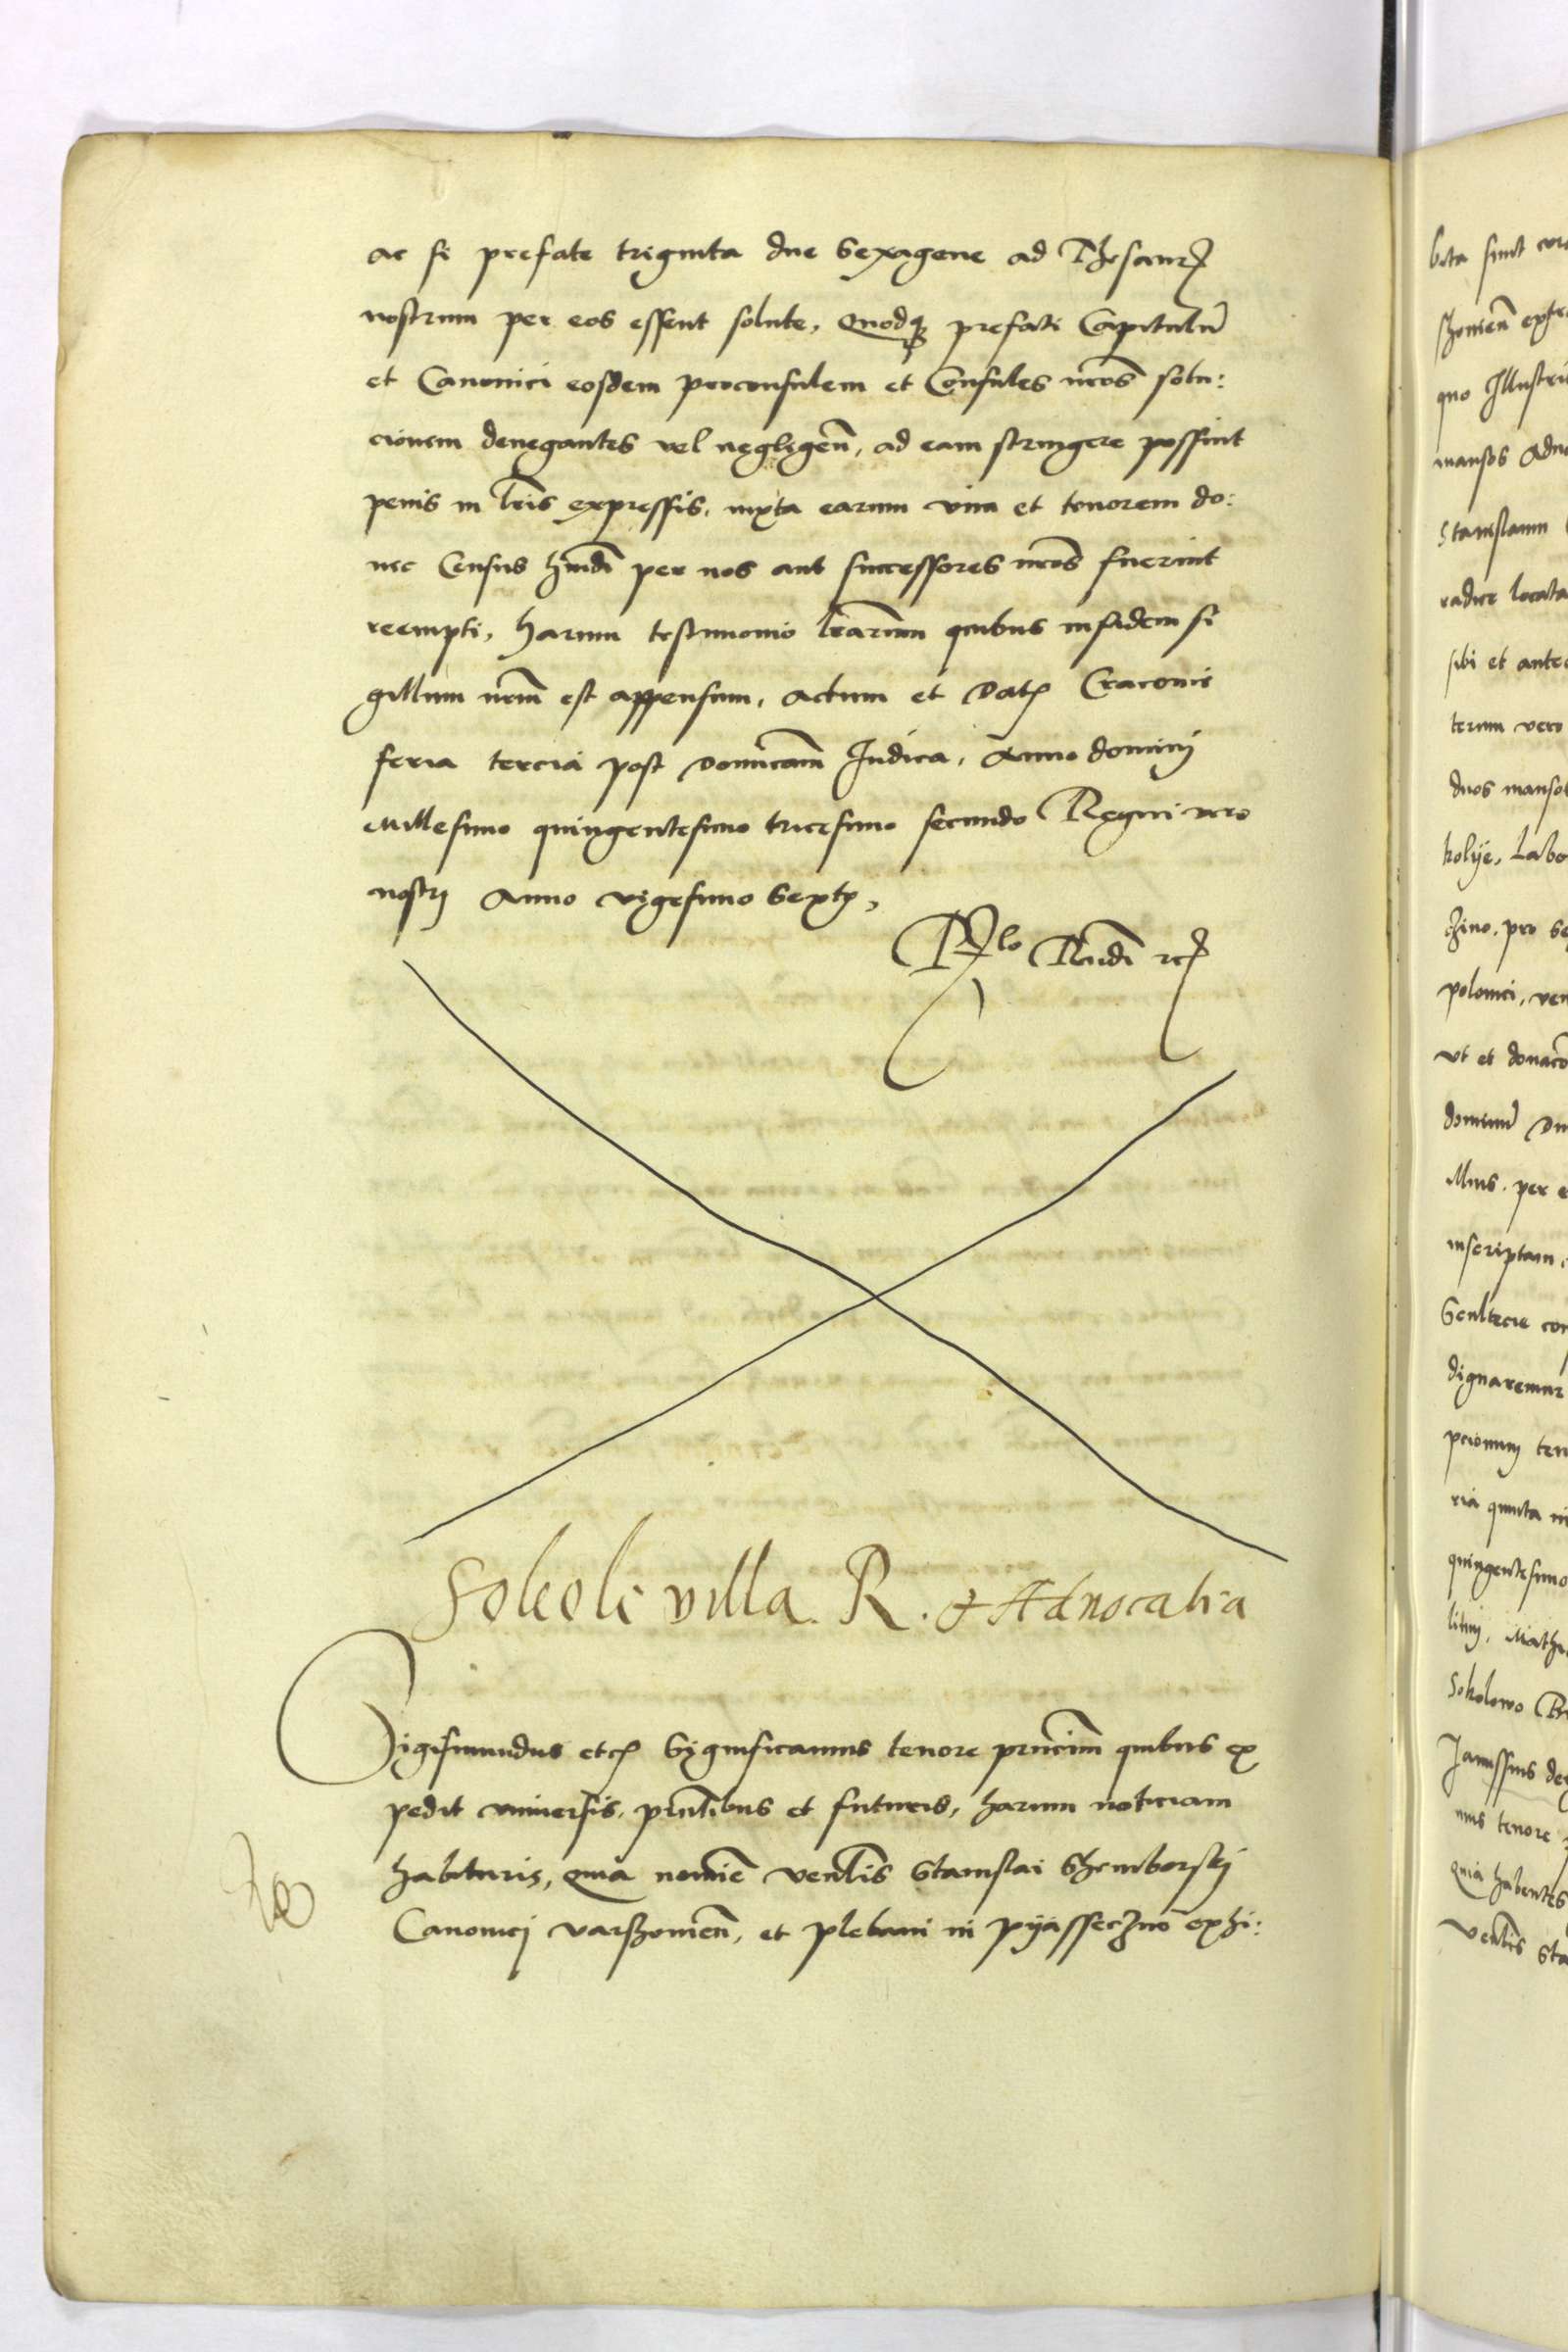 ac si prefate triginta due Sexagene ad Thesaur
nostrum per eos essent solute, Quodq prefati Capitulu
et Canonici eosdem proconsulem et Consules nros solu:
cionem denegantes vel negligen, ad eam stringere possint
penis in lris expressis, iuxta earum vim et tenorem do:
nec Census hmodi per nos aut successores nros fuerint
reempti, harum testimonio lrarum quibus in fidem si
gillum nrm est appensum, Actum et Dat Cracovie
feria tercia post Domicam Iudica, Anno domini
Millesimo quingentesimo tricesimo secundo Regni vero
nostri Anno vigesimo Sexto,
Rlo Rndi
Sokoli villa R. & Advocatia
Sigismundus etc Significamus tenore pncium quibus ex
pedit universis, pntibus et futuris, harum noticiam
habituris, quia nomie venlis Stanislai Shemborski
Canonici varshovien, et plebani in pyasseczno exhi:
bita sunt
shovien
quo Illustri
mansos
Stanislaum
radice locata
sibi et ante
terum vero
duos mansos
kolye, Labo
pro
polonici,
ut et donaco
illius. per
inscriptam
Scultecie
dignaremur
ria quinta
quingentesimo
Sokolowo
Janussius
nus tenore
quia habentes
venlis Sta